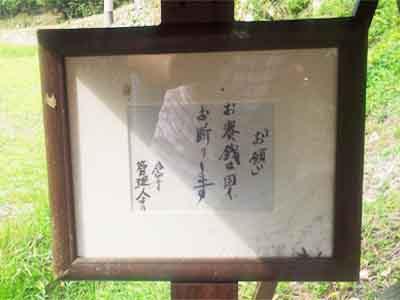 お願い
お賽銭は固く
お断りします
管理人より